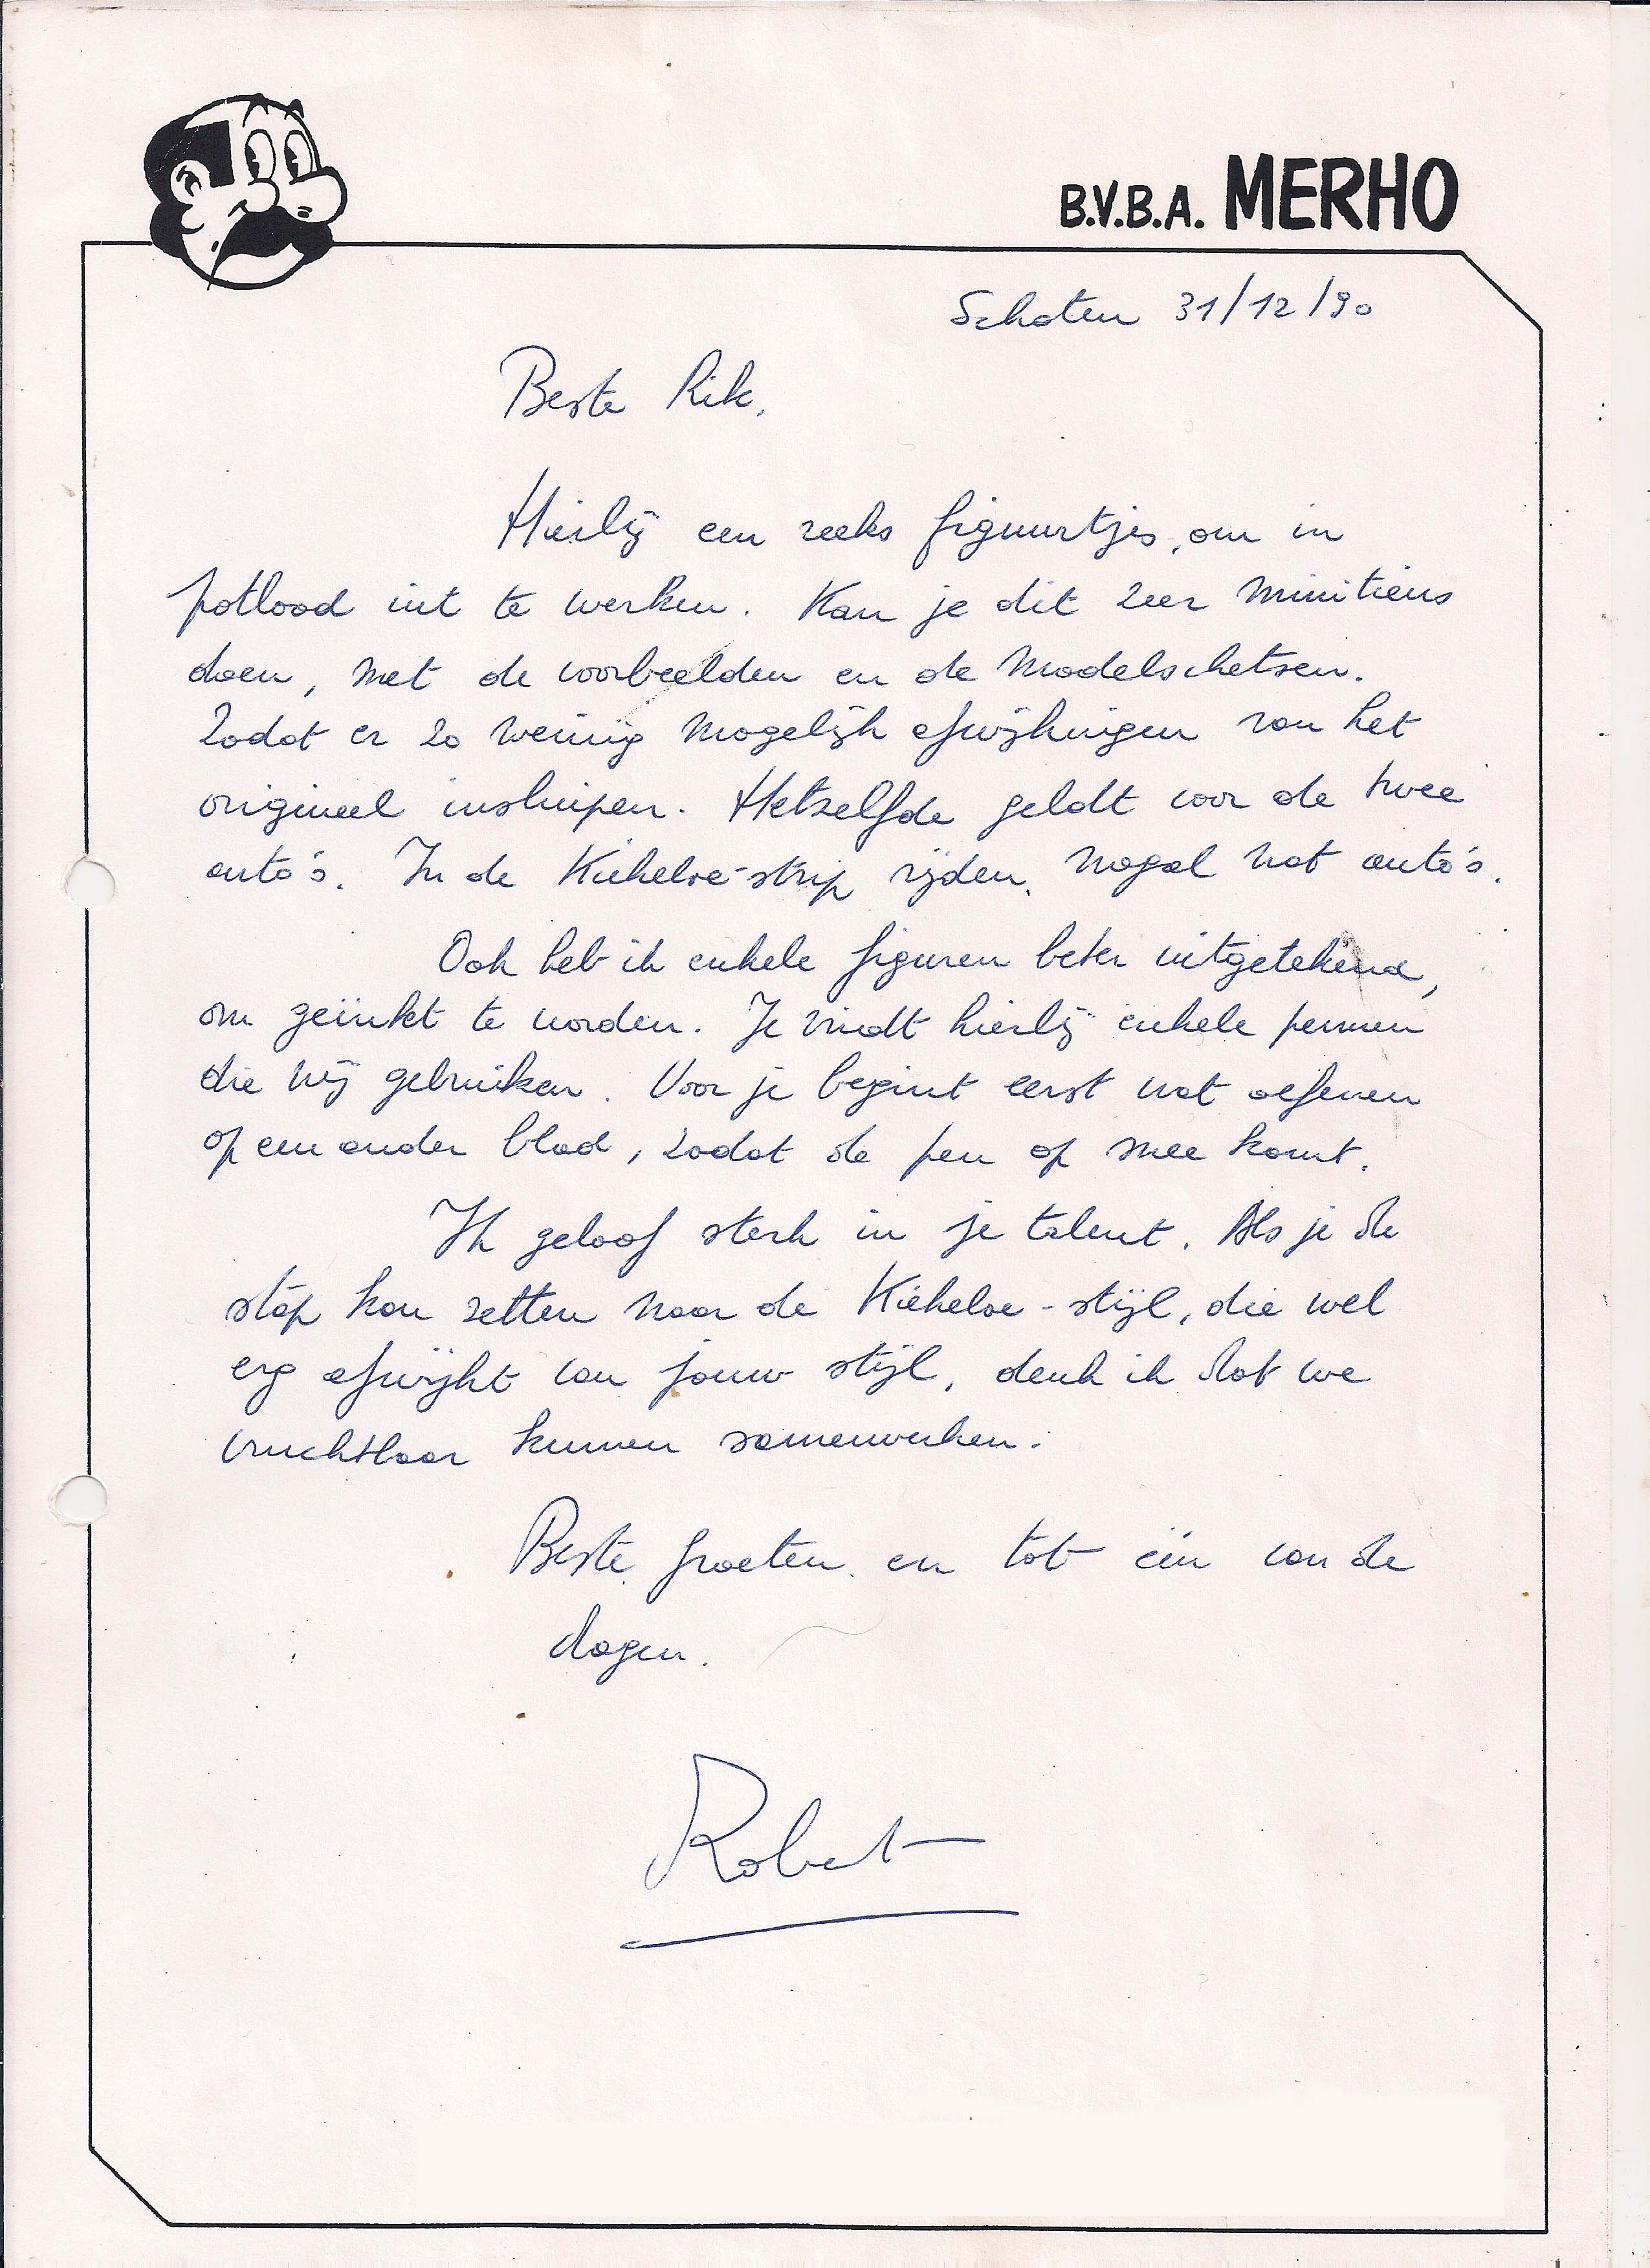 B.V.B.A. MERHO
Schoten 31/12/90
Beste Rik,
Hierbij een reeks figuurtjes, om in
potlood uit te werken. Kan je dit zeer minitieus
doen, met de voorbeelden en de modelschetsen.
Zodat er zo weinig mogelijk afwijkingen van het
origineel insluipen. Hetzelfde geldt voor de twee
auto's. In de Kiekeboe-strip rijden nogal wat auto's.
Ook heb ik enkele figuren beter uitgetekend,
om geïnkt te worden. Je vindt hierbij enkele pennen
die wij gebruiken. Voor je begint eerst wat oefenen
op een ander blad, zodat de pen op snee komt.
Ik geloof sterk in je talent. Als je de
stap kan zetten naar de Kiekeboe-stijl, die wel
erg afwijkt van jouw stijl, denk ik dat we
vruchtbaar kunnen samenwerken.
Beste groeten en tot één van de
dagen.
Robert